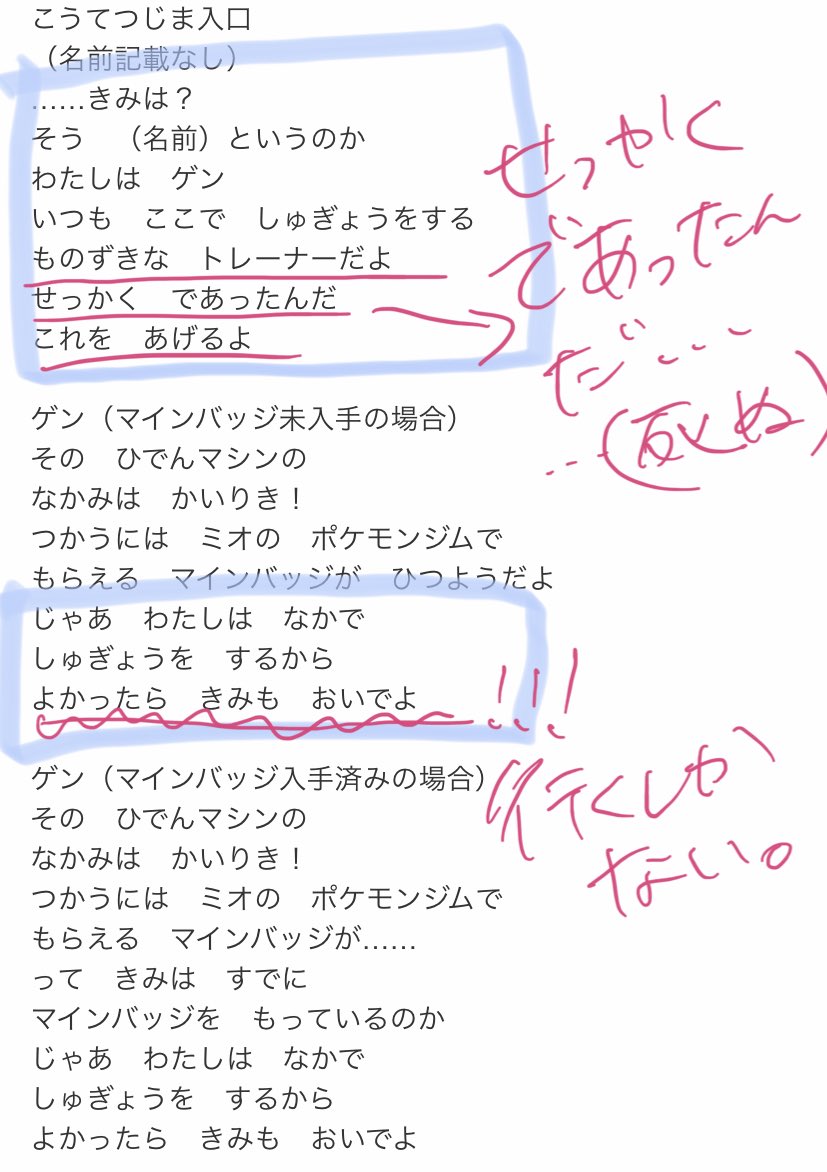 こうてつじま入口
（名前記載なし）
……きみは？
そう　（名前）というのか
わたしは　ゲン
いつも　ここで　しゅぎょうをする
ものずきな　トレーナーだよ
せっかく　であったんだ
これを　あげるよ
せっかく
であったん
だ…
…(死ぬ)
ゲン（マインバッジ未入手の場合）
その　ひでんマシンの
なかみは　かいりき！
つかうには　ミオの　ポケモンジムで
もらえる　マインバッジが　ひつようだよ
じゃあ　わたしは　なかで
しゅぎょうを　するから
よかったら　きみも　おいでよ
!!!
行くしか
ない。
ゲン（マインバッジ入手済みの場合）
その　ひでんマシンの
なかみは　かいりき！
つかうには　ミオの　ポケモンジムで
もらえる　マインバッジが……
って　きみは　すでに
マインバッジを　もっているのか
じゃあ　わたしは　なかで
しゅぎょうを　するから
よかったら　きみも　おいでよ